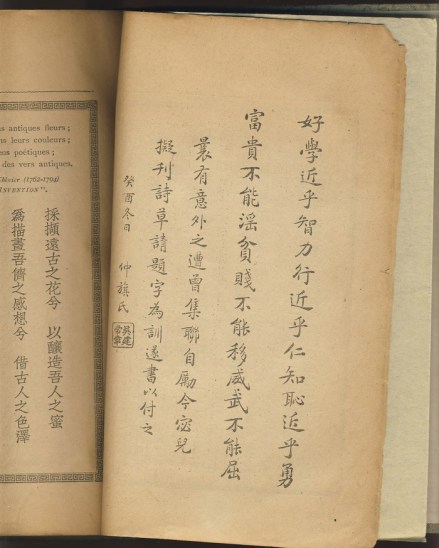 好學近乎智力行近乎仁知恥近乎勇
富貴不能滛貧賤不能移威武不能屈
曩有意外之遭曾集聯自勵今宓兒
擬刊詩草請題字為訓遂書以付之
癸酉冬日 仲旗氏
s antiques fleurs;
s leurs couleurs;
ux poétiques;
des vers antiques.
Chénier (1762-1794)
INVENTION".
採擷遠古之花兮 以釀造吾人之蜜
為描畫吾儕之感想兮 借古人之色澤